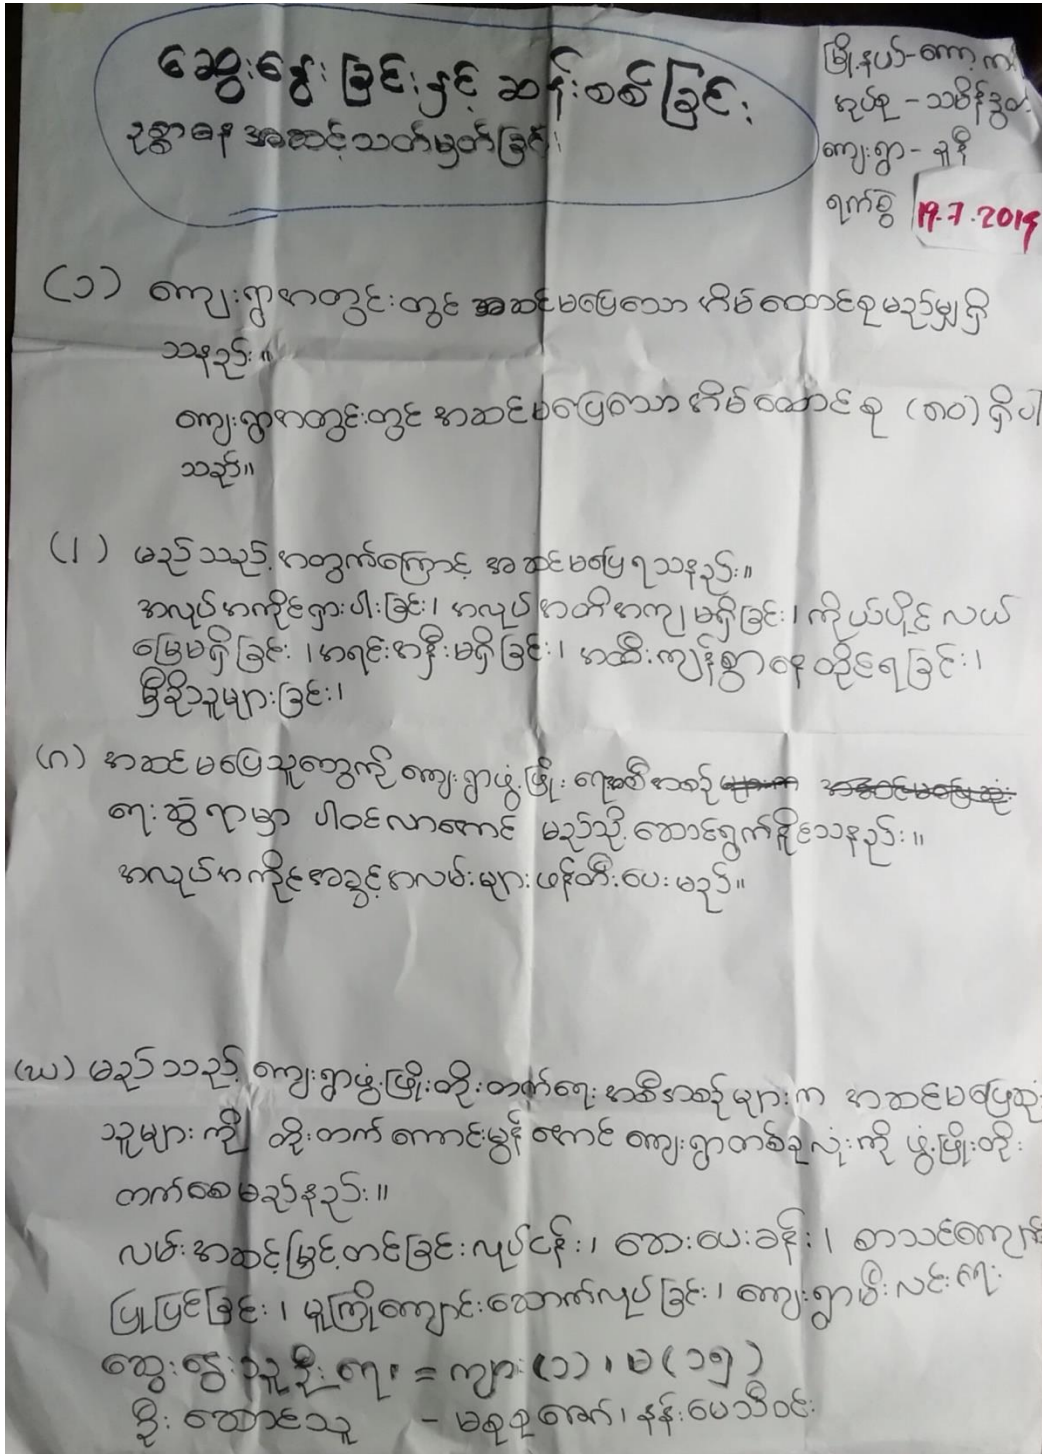 ဆွေးနွေးခြင်းနှင့် ဆန်းစစ်ခြင်း
ဥစ္စာဓန အဆင့်သတ်မှတ်ခြင်း
မြို့နယ်-ကော့က
အုပ်စု - သမိန်ဒွတ်
ကျေးရွာ - ခူနီ
ရက်စွဲ 19.7.2019
(၁) ကျေးရွာအတွင်းတွင် အဆင်မပြေသော အိမ်ထောင်စုမည်မျှရှိ
သနည်း။
ကျေးရွာအတွင်းတွင် အဆင်မပြေသော အိမ်ထောင်စု (၈၀) ရှိပါ
သည်။
(၂) မည်သည့်အတွက်ကြောင့် အဆင်မပြေရသနည်း။
အလုပ်အကိုင်ရှားပါးခြင်း၊ အလုပ်အတိအကျမရှိခြင်း၊ ကိုယ်ပိုင်လယ်
မြေမရှိခြင်း၊ အရင်းအနှီးမရှိခြင်း၊ အထီးကျန်စွာနေထိုင်ရခြင်း၊
မှီခိုသူများခြင်း၊
(၃) အဆင်မပြေသူတွေကို ကျေးရွာဖွံ့ဖြိုးရေးအစီအစဉ် များက အဆင်မပြေဆုံး
ရေးဆွဲရာမှာ ပါဝင်လာအောင် မည်သို့ဆောင်ရွက်နိူင်သနည်း။
အလုပ်အကိုင်အခွင့်အလမ်းများဖန်တီးပေးမည်။
(ဃ) မည်သည့် ကျေးရွာဖွံ့ဖြိုးတိုးတက်ရေး အစီအစဉ်များက အဆင်မပြေဆုံး
သူများကို တိုးတက်ကောင်းမွန်အောင် ကျေးရွာတစ်ခုလုံးကို ဖွံ့ဖြိုးတိုး
တက်စေမည်နည်း။
လမ်းအဆင့်မြှင့်တင်ခြင်းလုပ်ငန်း၊ ဆေးပေးခန်း၊ စာသင်ကျောင်း
ပြုပြင်ခြင်း၊ မူကြိုကျောင်းဆောက်လုပ်ခြင်း၊ ကျေးရွာမီးလင်းရေး
ဆွေးနွေးသူဦးရေ = ကျား (၁)၊ မ (၁၅)
ဦးဆောင်သူ - မစုစုဇော်၊ နန်းမေသီဝင်း